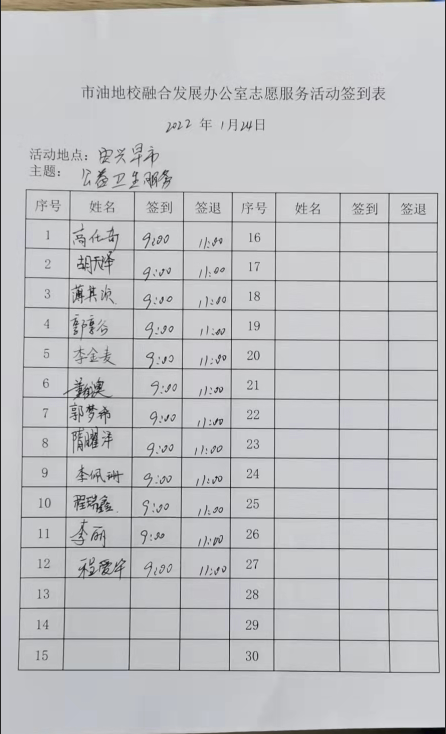 市油地校融合发展办公室志愿服务活动签到表
2022 年 1月24日
活动地点：宝兴早市
主题：公益卫生服务
序号 姓名 签到 签退 序号 姓名 签到 签退
1 高仕奇 9:00 11:00 16
2 胡天泽 9:00 11:00 17
3 9:00 11:00 18
4 9:00 11:00 19
5 李金麦 9:00 11:00 20
6 9:00 11:00 21
7 郭梦希 9:00 11:00 22
8 隋耀洋 9:00 11:00 23
9 李佩珊 9:00 11:00 24
10 程瑞鑫 9:00 11:00 25
11 李丽 9:00 11:00 26
12 程爱华 9:00 11:00 27
13 28
14 29
15 30